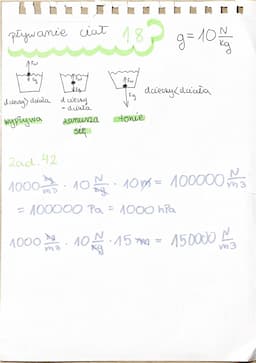 pływanie ciał 18?
g = 10 N/kg
d cieczy > działa
d cieczy = działa
d cieczy < działa
wypływa zanurza się tonie
Zad. 42
1000 kg/m3 · 10 N/kg · 10 m = 100000 N/m3
= 100000 Pa = 1000 hPa
1000 kg/m3 · 10 N/kg · 15 m = 150000 N/m3